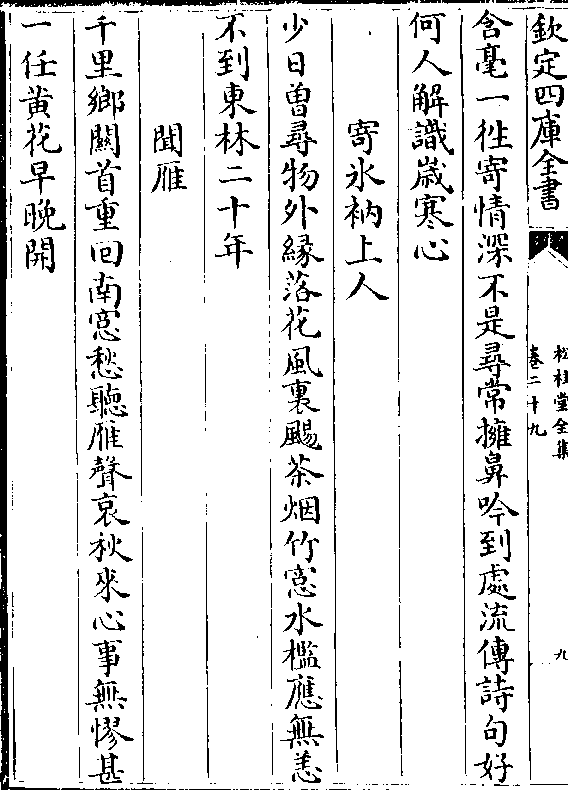 欽定四庫全書
松桂堂全集
卷二十九
九
含毫一往寄情深不是尋常擁鼻吟到處流傳詩句好
何人解識歳寒心
寄氷衲上人
少日曽尋物外縁落花風裏颺茶烟竹窻水檻應無恙
不到東林二十年
聞雁
千里鄉關首重回南窻愁聽雁聲哀秋來心事無憀甚
一任黄花早晚開